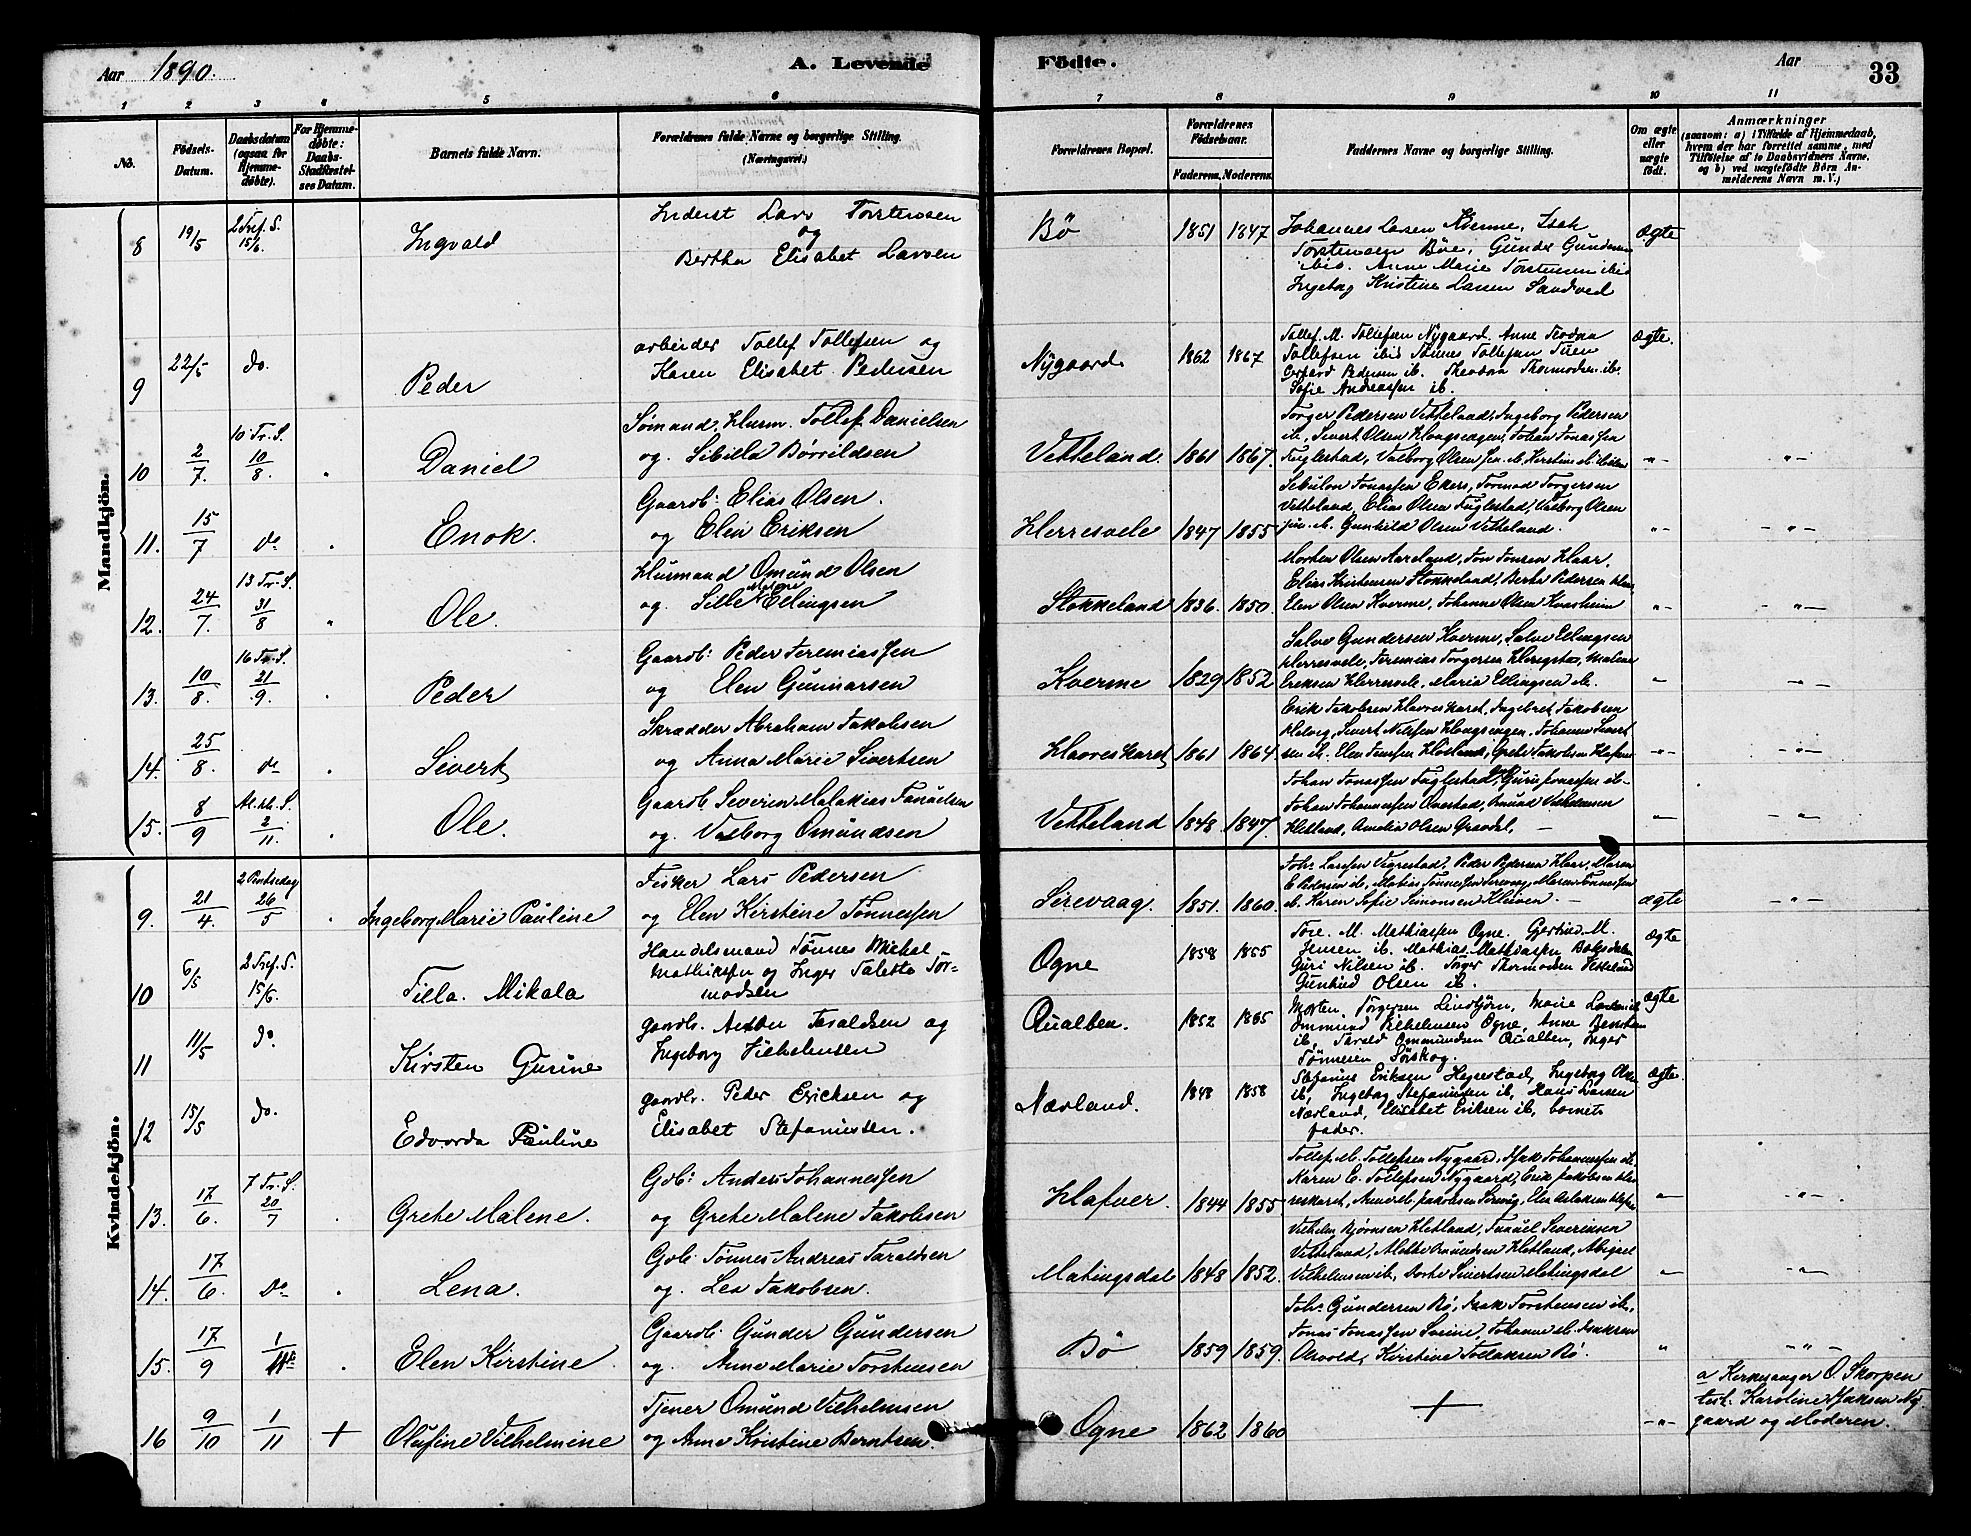 Aar 1890.
A. Levende Födte.
Aar
33
1 2 3 4 5 6 7 8 9 10 11
No.
Födsels-Datum.
Daabsdatum (ogsaa for Hjemme-döbte).
For Hjemme-døbte: Daabs-Stadfæstel-ses Datum.
Barnets fulde Navn.
Forældrenes fulde Navne og borgerlige Stilling. (Næringsvei.)
Forældrenes Bopæl.
Forældrenes Födselsaar.
Faderens. Moderens.
Faddernes Navne og borgerlige Stilling.
Om ægte eller uægte födt.
Anmærkninger
(saasom: a) i Tilfælde af Hjemmedaab,
hvem der har forrettet samme, med
Tilföielse af to Daabsvidners Navne,
og b) ved uægtefödte Börn An-
melderens Navn m. V.)
Mandkjön.
8 19/5 2 Tref. S. 15/6. Ingvald
Inderst Lars Torstensen
og
Bertha Elisabet Larsen
Bö 1851 1847
Johannes Larsen Kvenne, Isak
Torstensen Böe, Gunder Gundersen
ibid. Anne Marie Torstensen ibid
Ingebog Kristine Larsen Sandved
Ægte
9 22/5 do. Peder
arbeider Tollef Tollefsen og
Karen Elisabet Pedersen
Nygaard 1862 1867
Tollef. M. Tollefsen Nygaard. Anne Teodoa
Tollefsen ibid Tönnes Tollefsen Tuen
Pedersen ib. Theodora Thormodsen ib.
Sofie Andreassen ib.
Ægte.
10 2/7. 10 Tr. S. 10/8. Daniel
Sömand, Husm. Tollef Danielsen
og Sibilla Börrildsen
Vetteland. 1861 1867.
Torger Pedersen Vetteland, Ingeborg Pedersen
ib., Sivert Olsen Klongseagen, Johan Jonassen
Fuglestad, Valborg Olsen
-"- -"-
11. 15/7 do Enok.
Gaardb: Elias Olsen.
og Elen Eriksen
Herresvele 1847 1855
Sebulon Jonassen Eker, Tormod Torgersen
Vetteland, Elias Olsen Fuglestad, Valborg Olsen
Gunhild Olsen Vetteland.
-"- -"-
12. 24/7. 13 Tr. S. 31/8 Ole.
Husmand Omund Olsen
og Sille Malene Edingsen
Stokkeland 1836. 1850.
Morten Olsen Aareland, Jon Jonsen Haar,
Elias Kristensen Stokkeland, Berte Pedersen
Elen Olsen Kverme, Johanne Olsen Kvasheim
-"- -"-
13. 10/8. 16 Tr. S. 21/9. Peder
Gaardb: Peder Jeremiassen
og Elen Gunnarsen
Kverme 1829 1852
Salve Gundersen Kverme, Salve Edingsen
Herresvele, Jeremias Torgersen Malene
Eriksen Herresvele, Maria Edingsen ib.
-"-
14. 25/8. do Sivert
Skrædder Abraham Jakobsen
og Anna Marie Sivertsen
Haareskaret 1861 1864.
Erik Jakobsen Haareskaret, Ingebret Jakobsen
Sivert Nielsen Klongseagen, Johanne Sivert
sen ib. Elen Jensen Hetland, Grete Jakobsen
-"- -"-
15. 8/9 2/11. Ole.
Gaardb. Severin Malakias Tanuelsen
og. Valborg Omundsen
Vetteland 1848. 1847.
Johan Jonassen Fuglestad, Guri Jonassen ib.
Johan Johannessen Ovestad, Omund Vilhelmsen
Hetland, Amelia Olsen Gravdal.
-"-
Kvindekjön.
9. 21/4. 2 Pintsedag 26/5 Ingeborg Marie Pauline
Fisker Lars Pedersen
og Elen Kirstine Tönnessen
Sirevaag. 1851. 1860.
Johs Larsen Vigrestad, Peder Pedersen Haar, Maren
E Pedersen ib, Matias Tönnessen Sirevaag, Maren Tönnessen
ib. Karen Sofie Simonsen
ægte -"-
10 6/5 2 Tref. S. 15/6. Tilla. Mikala
Handelsmand Tönnes Mikal
Mathiassen og Inger Talette Tor-
modsen
Ogne 1858 1855
Tore. M. Mathiassen Ogne. Gjertine M.
Jensen ib. Mathias Mathiassen
Guri Nilsen ib. Torger Thormodsen Vetteland
Gunhild Olsen ib.
Ægte
11 11/5 do. Kirsten Gurine
gaardbr. Taraldsen og
Ingeborg Vilhelmsen
Qualben. 1852 1865
Morten Torgersen Lindtjörn, Marie
Ommund Vilhelmsen Ogne, Anne Berntsen
ib, Tarald Ommundsen Qualben, Inger
Tönnesen Sörskog.
Ægte
12 15/5 do. Edvarda Pauline
gaardbr. Peder Ericksen og
Elisabet Stefanussen.
Nærland. 1848 1858
Stefanus Eriksen Hegrestad, Ingeborg Olsen
ib, Ingebog Stefanussen ib, Hans Larsen
Nærland, Elisabet Eriksen ib, barnets
fader.
Ægte.
13. 17/6. 7 Tr. S. 20/7 Grethe Malene.
Gdb: Anders Johannessen
og Grethe Malene Jakobsen
Hafver. 1844 1855
Tollef M. Tollefsen Nygaard, Isak Johannessen ib.
Karen E. Tollefsen Nygaard, Erik Jakobsen Haa
reskaret,
-"- -"-
14. 17/6. do Lena.
Gdb. Tönnes Andreas Taraldsen
og. Lea Jakobsen.
Matingsdal 1848 1852.
Vilhelm Björnsen Hetland, Tanuel Severinsen
Vetteland, Mette Omundsen Hetland, Abigael
Vilhelmsen ib, Dorte Sivertsen Matingsdal
-"-
15. 17/9 1/11 Elen Kirstine.
Gaardb. Gunder Gundersen
og. Anne Marie Torstensen
Bö 1859 1859.
Johs Gundersen Bö, Isak Torstensen ib.,
Jonas Jonassen Johanne M. Isaksen
Kirstine Tollaksen Bö.
"
16 9/10 1/11 + Olufine Vilhelmine
Tjener Omund Vilhelmsen
og Anne Kristine Berntsen.
Ogne 1862 1860
+
-"-
a Kirkesanger O. Skorpen
test. Karoline Isaksen Ny
gaard og Moderen.